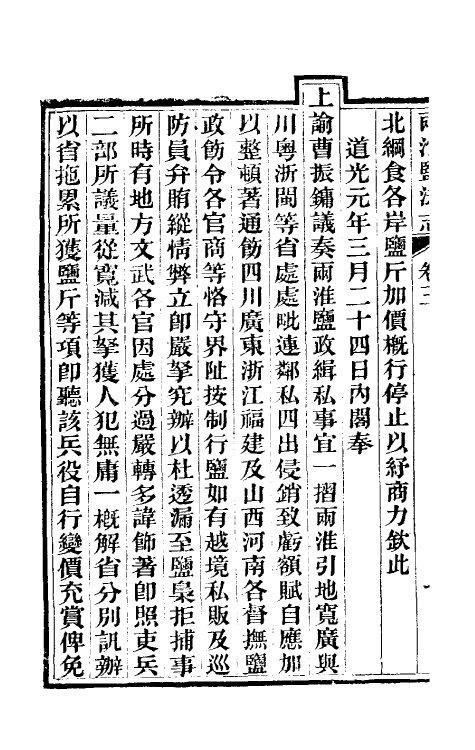 兩淮鹽法志 卷三
北綱食各岸鹽斤加價概行停止以紓商力欽此
道光元年三月二十四日內閣奉
上諭曹振鏞議奏兩淮鹽政緝私事宜一摺兩淮引地寬廣與
川粵浙閩等省處處毗連鄰私四出侵銷致虧額賦自應加
以整頓著通飭四川廣東浙江福建及山西河南各督撫鹽
政飭令各官商等恪守界址按制行鹽如有越境私販及巡
防員弁賄縱情弊立卽嚴拏究辦以杜透漏至鹽梟拒捕事
所時有地方文武各官因處分過嚴轉多諱飾著卽照吏兵
二部所議量從寬減其拏獲人犯無庸一概解省分別訊辦
以省拖累所獲鹽斤等項卽聽該兵役自行變價充賞俾免